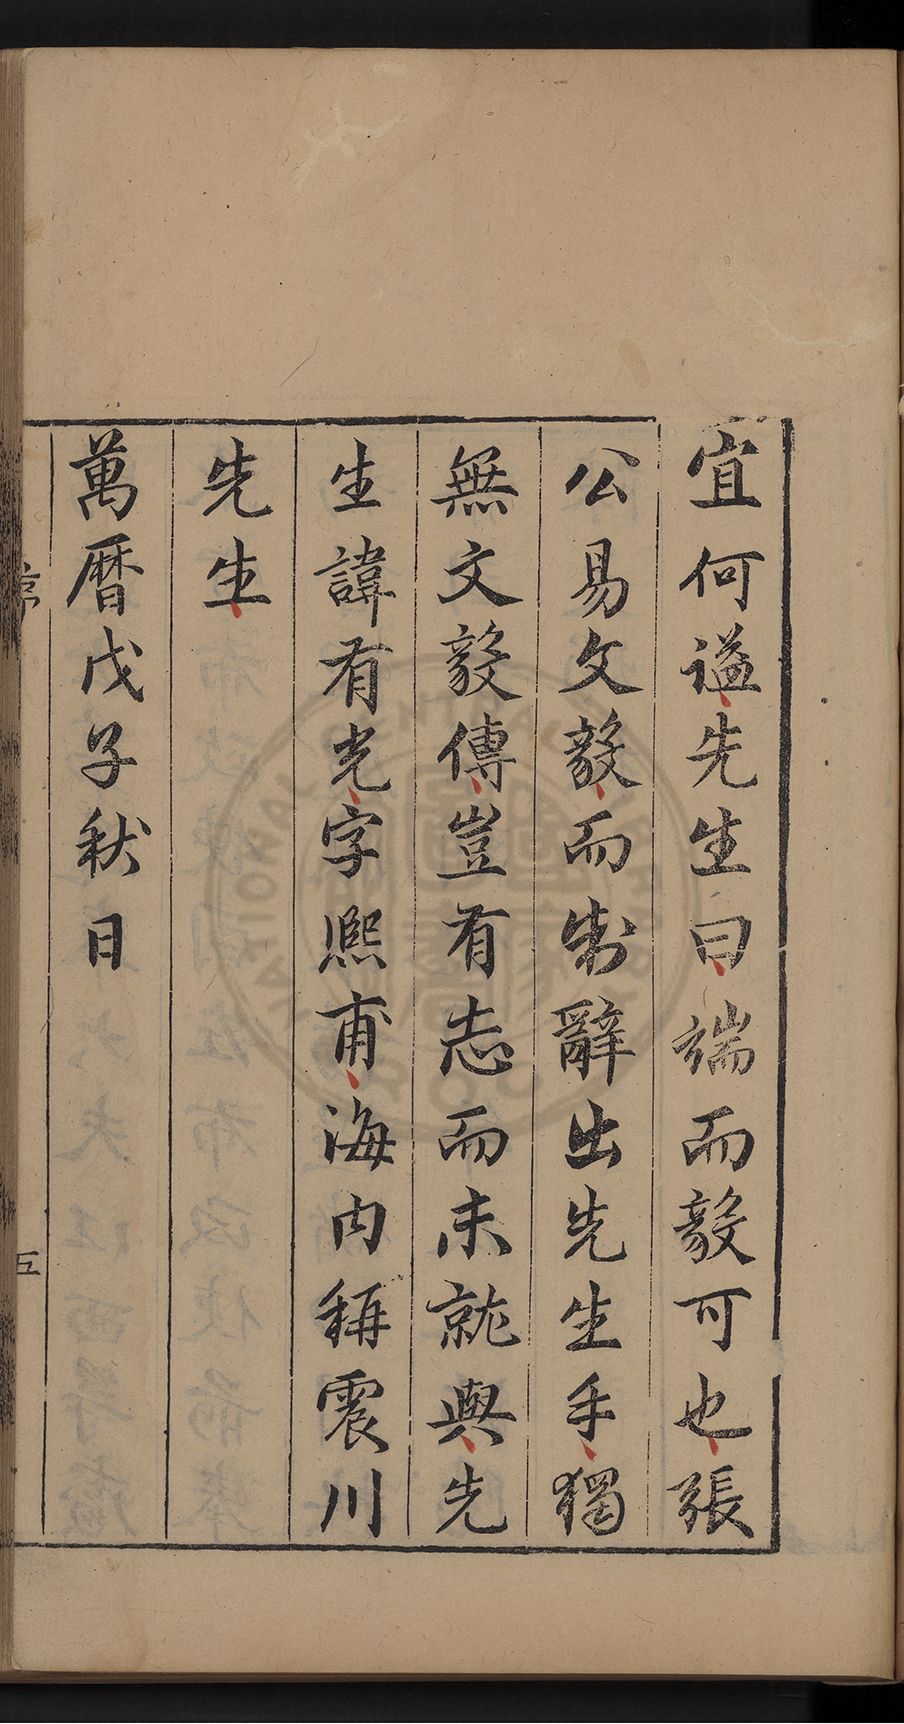 宜何謚先生曰端而毅可也張
公易文毅而制辭出先生手獨
無文毅傳豈有志而未就與先
生諱有光字熙甫海内稱震川
先生
萬曆戊子秋日
序
五